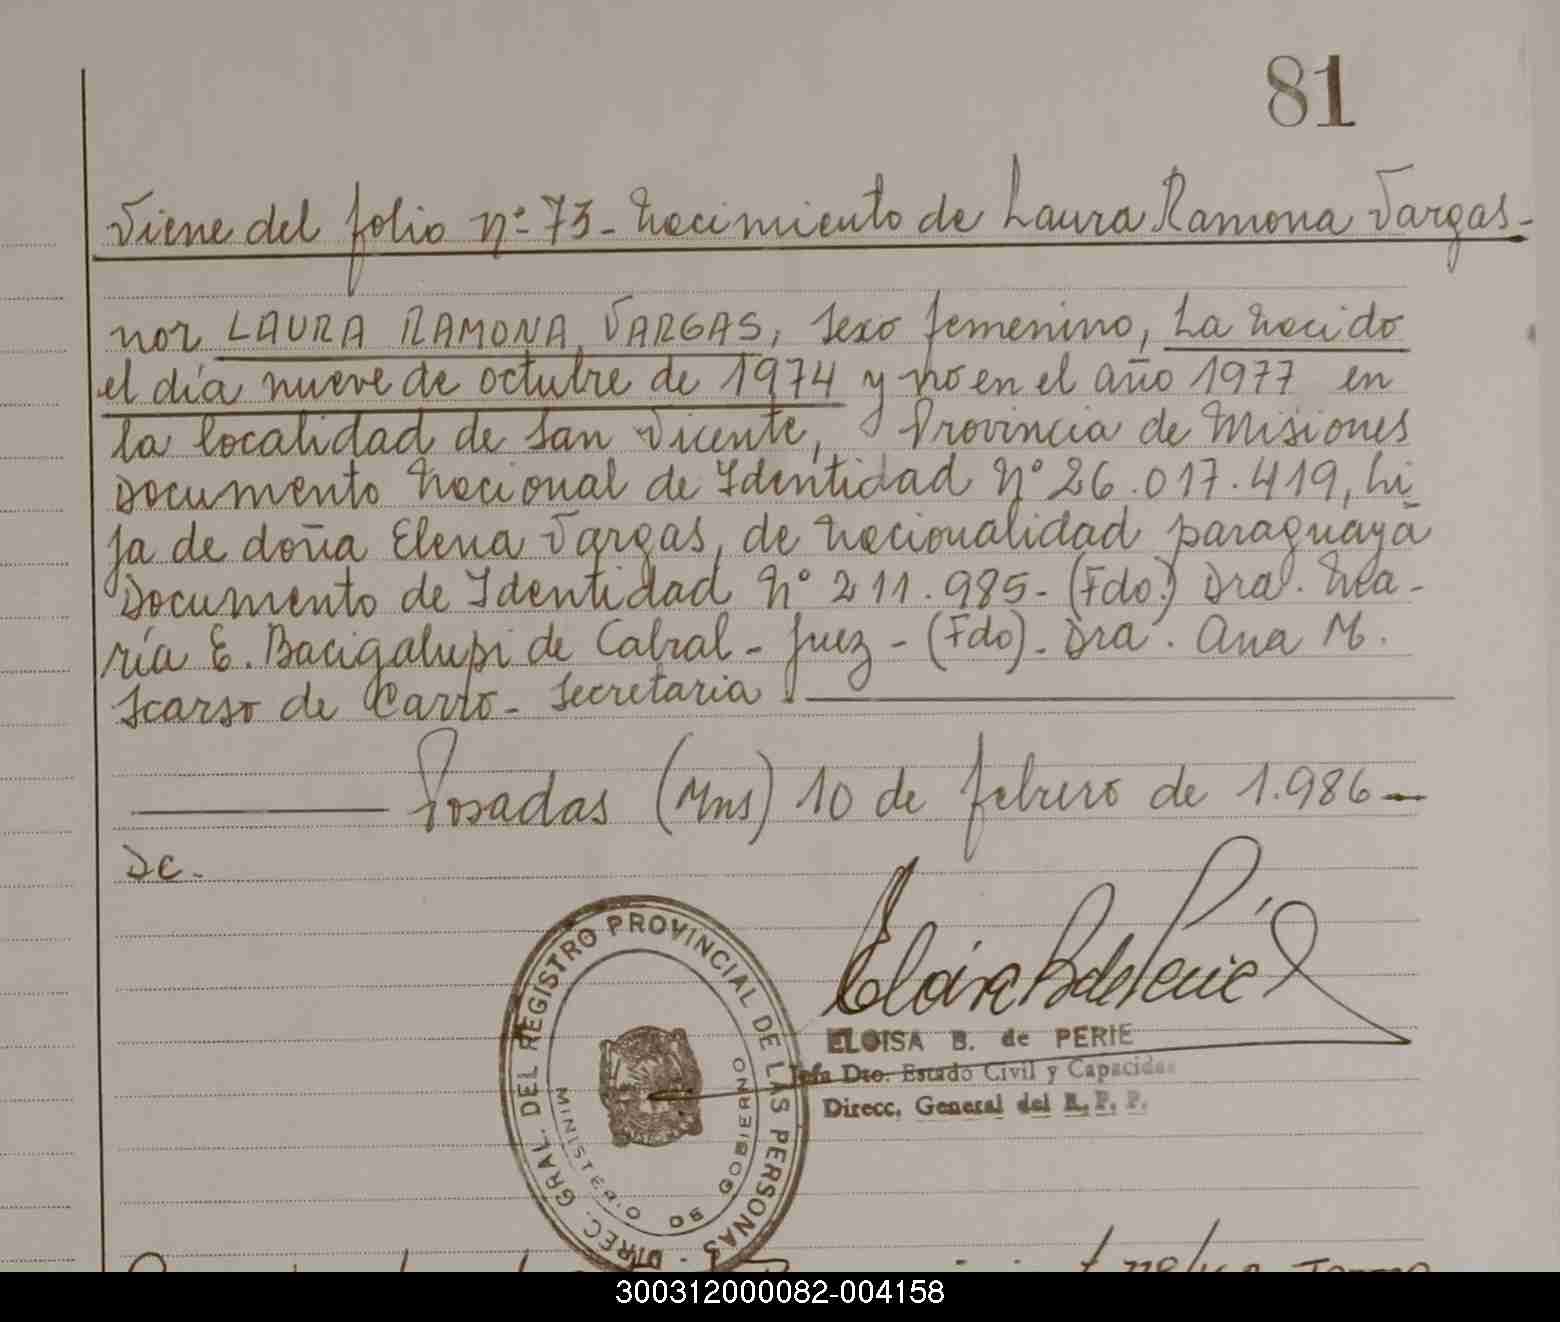 81
Viene del folio nº 73 - Nacimiento de Laura Ramona Vargas -
nor LAURA RAMONA VARGAS, sexo femenino, ha nacido
el día nueve de octubre de 1974 y no en el año 1977 en
la localidad de San Vicente, Provincia de Misiones
Documento Nacional de Identidad Nº 26.017.419, hi
ja de doña Elena Vargas, de nacionalidad paraguaya
Documento de Identidad Nº 211.985 - (Fdo.) Dra. Ma-
ría E. Bacigalupi de Cabral - Juez - (Fdo) - Dra. Ana M.
Scarso de Carró - Secretaria.
Posadas (Mns) 10 de febrero de 1.986 -
DC.
DIREC. GRAL. DEL REGISTRO PROVINCIAL DE LAS PERSONAS
MINISTERIO DE GOBIERNO
ELOISA B. de PERIE
Jefa Dto. Estado Civil y Capacidad
Direcc. General del R. P. P.
300312000082-004158